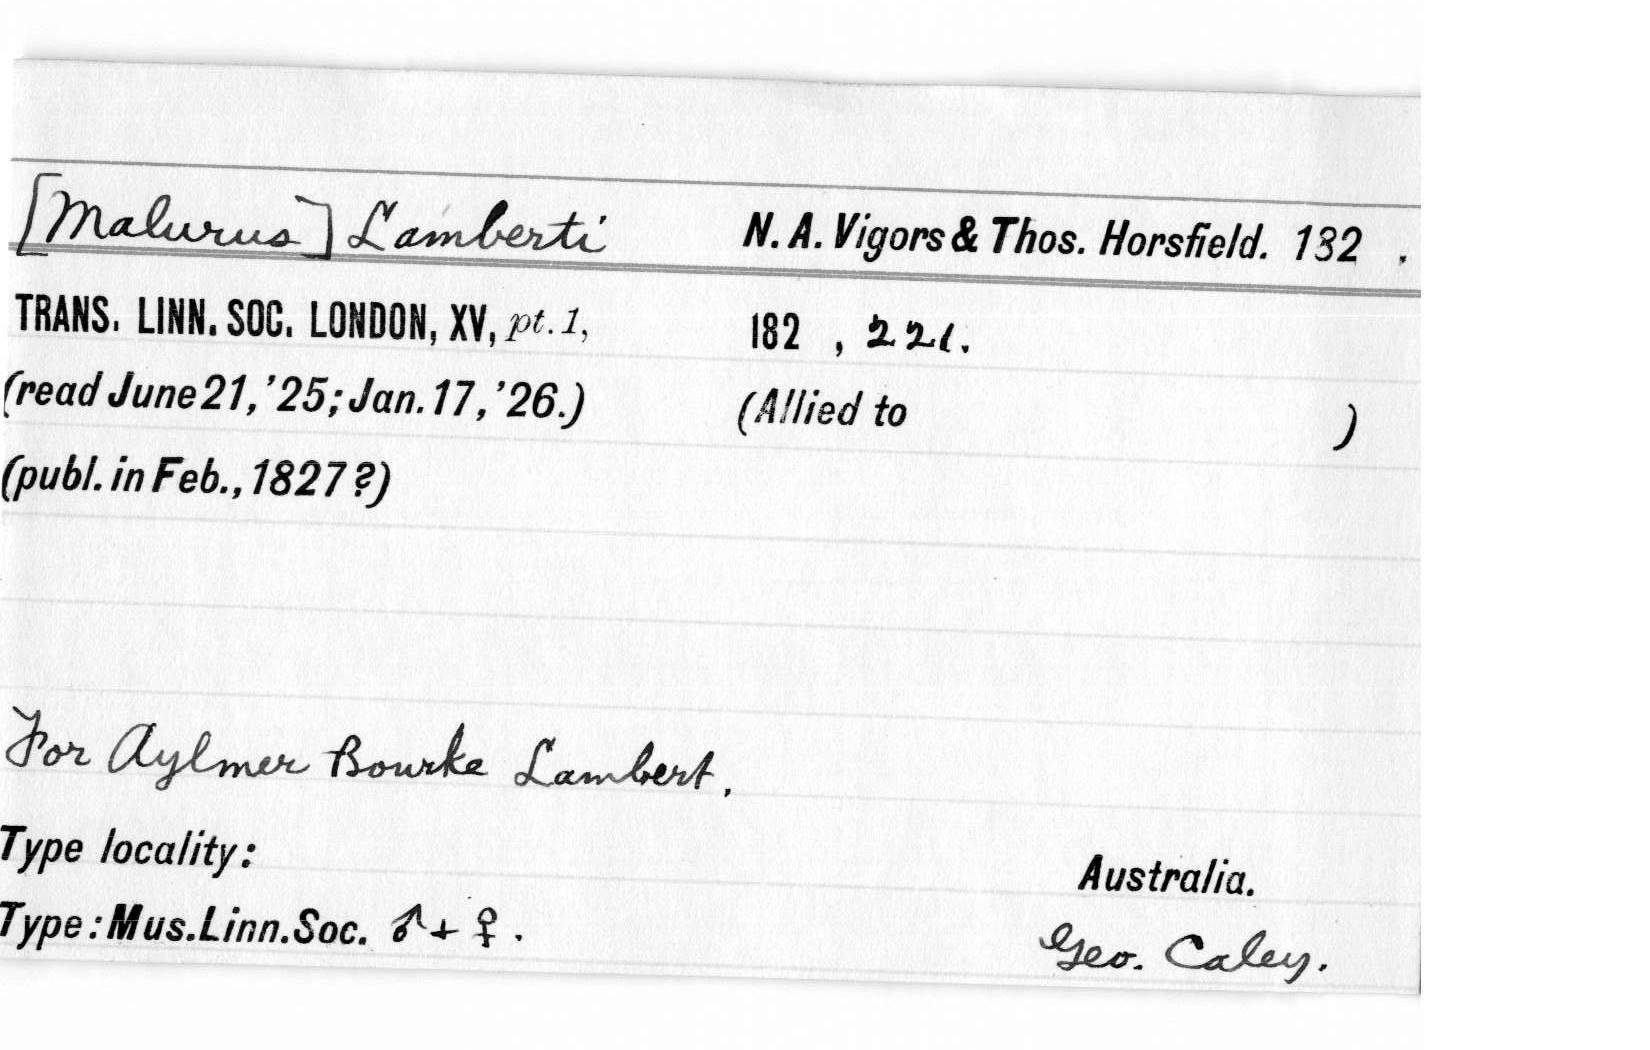 [Malurus] Lamberti N. A. Vigors & Thos. Horsfield. 182 .
TRANS. LINN. SOC. LONDON, XV, pt. 1, 182 , 221.
(read June 21, '25; Jan. 17, '26.) (Allied to )
(publ. in Feb., 1827?)
For Aylmer Bourke Lambert.
Type locality: Australia.
Type: Mus. Linn. Soc. ♂ + ♀. Geo. Caley.